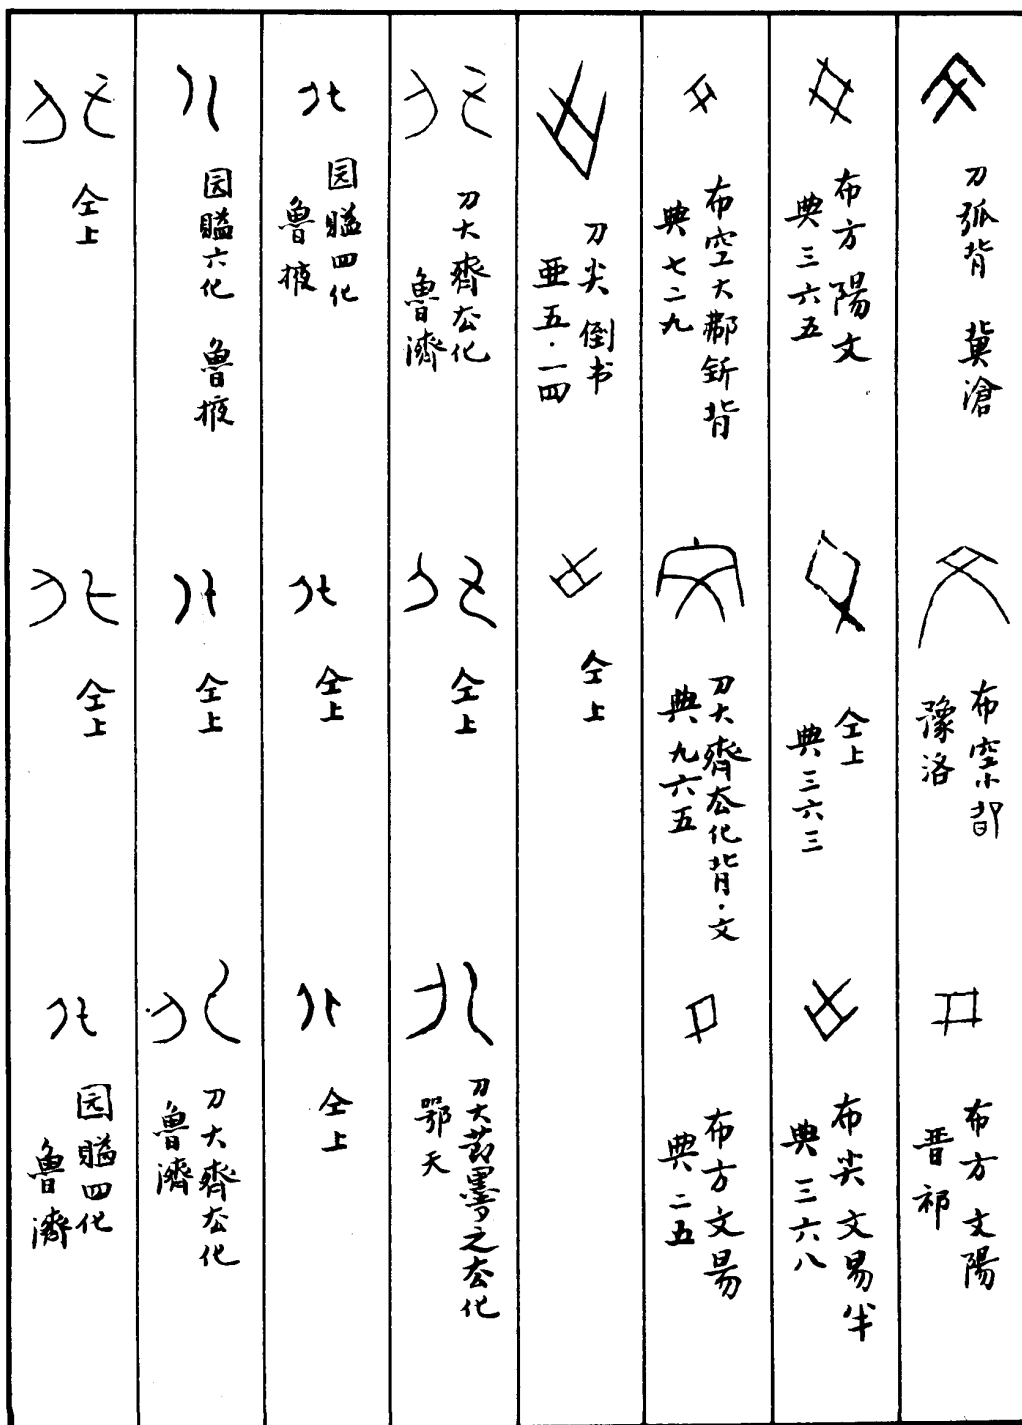 刀弧背 冀滄
布空小邵
豫洛
布方文陽
晋祁
布方陽文
典三六五
仝上
典三六三
布尖文易半
典三六八
布空大郙釿背
典七二九
刀大齊厺化背·文
典九六五
布方文易
典二五
刀尖倒书
亜五·一四
仝上
刀大齊厺化
魯濟
仝上
刀大節墨之厺化
鄂天
园賹四化
魯掖
仝上
仝上
园賹六化 魯掖
仝上
刀大齊厺化
魯濟
仝上
仝上
园賹四化
魯濟